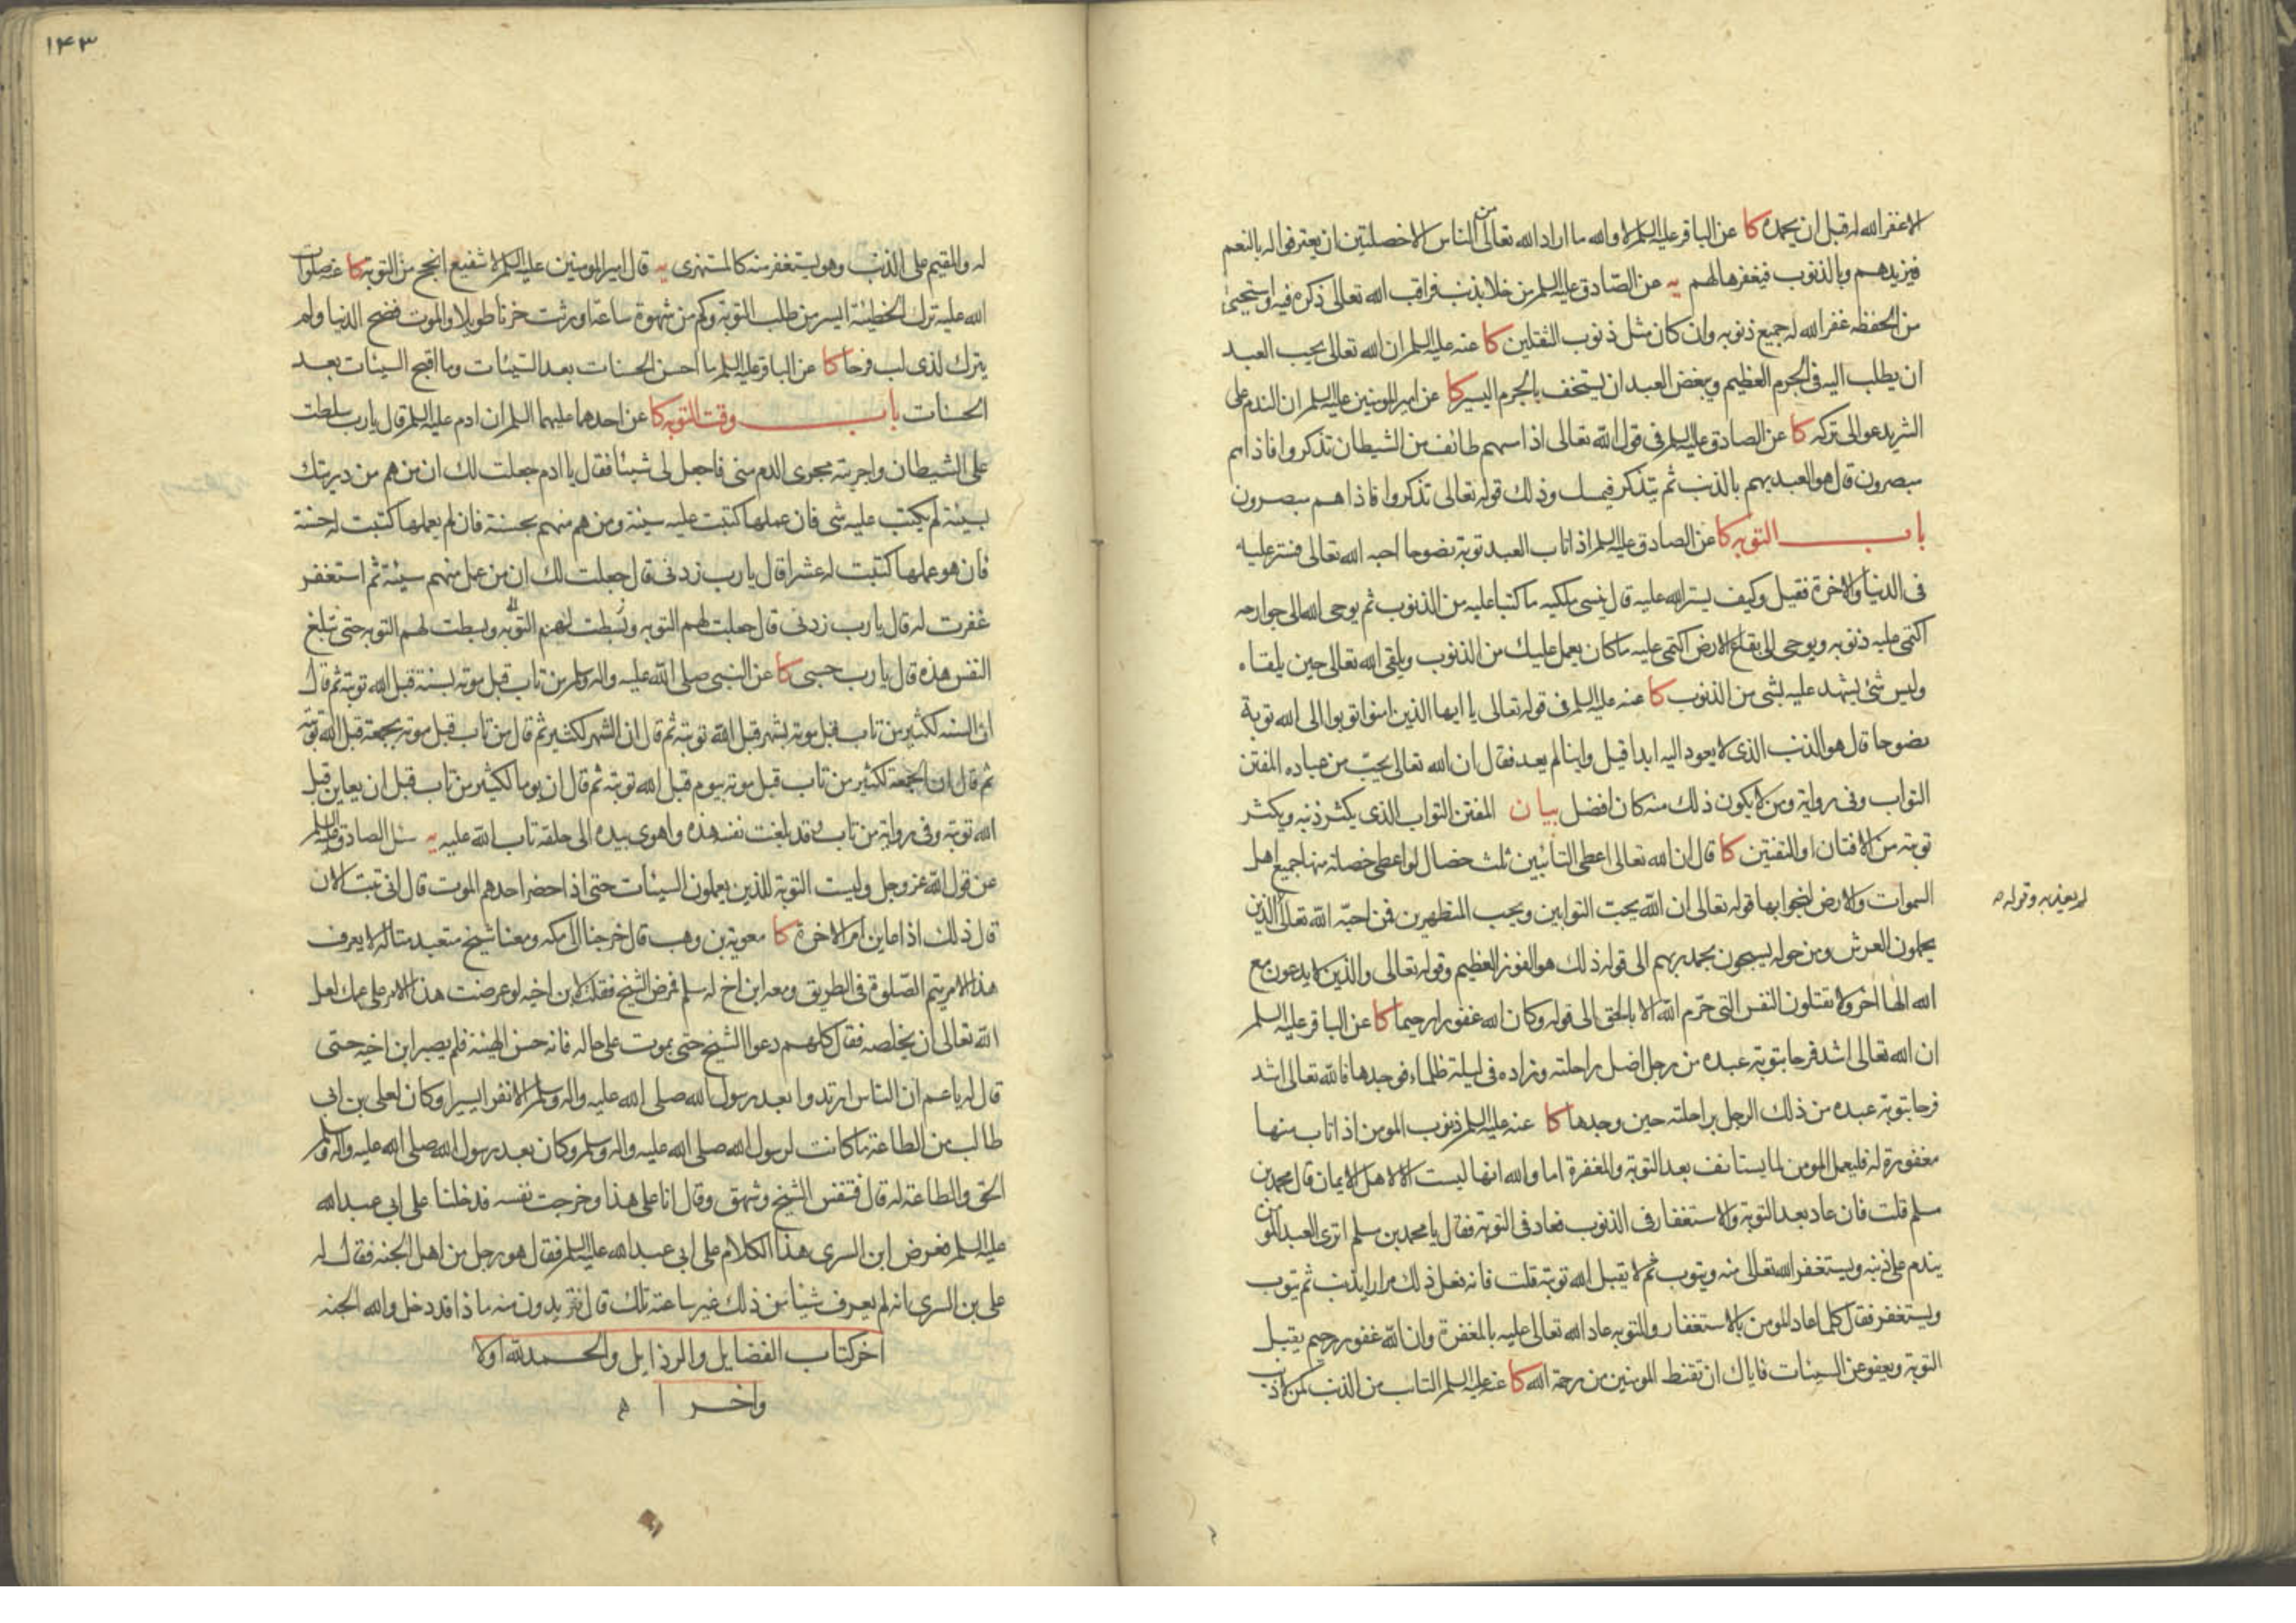 الا غفر الله له قبل ان يحمده كا عن الباقر عليه السلم لا والله ما اراد الله تعالى من الناس الا خصلتين ان يعترفوا له بالنعم
فيزيدهم وبالذنوب فيغفرها لهم يه عن الصادق عليه السلم من خلا بذنب فراقب الله تعالى ذكره فيه واستحيى
من الحفظه غفر الله له جميع ذنوبه وان كان مثل ذنوب الثقلين كا عنه عليه السلم ان الله تعالى يحب العبد
ان يطلب اليه فى الجرم العظيم ويبغض العبد ان يستخف بالجرم اليسير كا عن امير المومنين عليه السلم ان الندم على
الشر يدعو الى تركه كا عن الصادق عليه السلم فى قول الله تعالى اذا مسهم طائف من الشيطان تذكروا فاذا هم
مبصرون قال هو العبد يهم بالذنب ثم يتذكر فيمسك وذلك قوله تعالى تذكروا فاذا هم مبصرون
باب التوبه كا عن الصادق عليه السلم اذا تاب العبد توبة نصوحا احبه الله تعالى فستر عليه
فى الدنيا والاخرة فقيل وكيف يستر الله عليه قال ينسى ملكيه ما كتبا عليه من الذنوب ثم يوحى الله الى جوارحه
اكتمى عليه ذنوبه ويوحى الى بقاع الارض اكتمى عليه ما كان يعمل عليك من الذنوب ويلقى الله تعالى حين يلقاه
وليس شئ يشهد عليه بشئ من الذنوب كا عنه عليه السلم فى قوله تعالى يا ايها الذين امنوا توبوا الى الله توبة
نصوحا قال هو الذنب الذى لا يعود اليه ابدا قيل واينا لم يعد فقال ان الله تعالى يحب من عباده المفتن
التواب وفى رواية ومن لا يكون ذلك منه كان افضل بيان المفتن التواب الذى يكثر ذنبه ويكثر
توبته من الافتان او التفتين كا قال ان الله تعالى اعطى التائبين ثلث خصال لو اعطى خصلة منها جميع اهل
السموات والارض لنجوا بها قوله تعالى ان الله يحب التوابين ويحب المتطهرين فمن احبه الله تعالى الذين
لم يعذبه وقوله
يحملون العرش ومن حوله يسبحون بحمد ربهم الى قوله ذلك هو الفوز العظيم وقوله تعالى والذين لا يدعون مع
الله الها اخر ولا يقتلون النفس التى حرم الله الا بالحق الى قوله وكان الله غفورا رحيما كا عن الباقر عليه السلم
ان الله تعالى اشد فرحا بتوبة عبده من رجل اضل راحلته وزاده فى ليلة ظلماء فوجدها فالله تعالى اشد
فرحا بتوبة عبده من ذلك الرجل براحلته حين وجدها كا عنه عليه السلم ذنوب المومن اذا تاب منها
مغفورة له فليعمل المومن لما يستانف بعد التوبة والمغفرة اما والله انها ليست الا لاهل الايمان قال محمد بن
مسلم قلت فان عاد بعد التوبة والاستغفار فى الذنوب فعاد فى التوبة فقال يا محمد بن مسلم اترى العبد المومن
يندم على ذنبه ويستغفر الله تعالى منه ويتوب ثم لا يقبل الله توبته قلت فانه فعل ذلك مرارا يذنب ثم يتوب
ويستغفر فقال كلما عاد المومن بالاستغفار والتوبه عاد الله تعالى عليه بالمغفرة وان الله غفور رحيم يقبل
التوبة ويعفو عن السيئات فاياك ان تقنط المومنين من رحمة الله كا عنه عليه السلم التائب من الذنب كمن لا ذنب
١٤٣
له والمقيم على الذنب وهو يستغفر منه كالمستهزى يه قال امير المومنين عليه السلم لا شفيع انجح من التوبة كا عنه صلوات
الله عليه ترك الخطيئة ايسر من طلب التوبة وكم من شهوة ساعة اورثت حزنا طويلا والموت فضح الدنيا ولم
يترك لذى لب فرحا كا عن الباقر عليه السلم ما احسن الحسنات بعد السيئات وما اقبح السيئات بعد
الحسنات باب وقت التوبه كا عن احدهما عليهما السلم ان ادم عليه السلم قال يا رب سلطت
على الشيطان واجريته مجرى الدم منى فاجعل لى شيئا فقال يا ادم جعلت لك ان من هم من ذريتك
بسيئة لم يكتب عليه شى فان عملها كتبت عليه سيئة ومن هم منهم بحسنة فان لم يعملها كتبت له حسنة
فان هو عملها كتبت له عشرا قال يا رب زدنى قال جعلت لك ان من عمل منهم سيئة ثم استغفر
غفرت له قال يا رب زدنى قال جعلت لهم التوبه وبسطت لهم التوبه وبسطت لهم التوبه حتى تبلغ
النفس هذه قال يا رب حسبى كا عن النبى صلى الله عليه واله وسلم من تاب قبل موته بسنة قبل الله توبته ثم قال
ان السنه لكثير من تاب قبل موته بشهر قبل الله توبته ثم قال ان الشهر لكثير ثم قال من تاب قبل موته بجمعة قبل الله توبته
ثم قال ان الجمعة لكثير من تاب قبل موته بيوم قبل الله توبته ثم قال ان يوما لكثير من تاب قبل ان يعاين قبل
الله توبته وفى رواية من تاب وقد بلغت نفسه هذه واهوى بيده الى حلقه تاب الله عليه يه سئل الصادق عليه السلم
عن قول الله عز وجل وليست التوبة للذين يعملون السيئات حتى اذا حضر احدهم الموت قال انى تبت الان
قال ذلك اذا عاين امر الاخرة كا معوية بن وهب قال خرجنا الى مكه ومعنا شيخ متعبد متاله لا يعرف
هذا الامر يتم الصلوة فى الطريق ومعه ابن اخ له مسلم فمرض الشيخ فقلت لابن اخيه لو عرضت هذا الامر على عمك لعل
الله تعالى ان يخلصه فقال كلهم دعوا الشيخ حتى يموت على حاله فانه حسن الهيئة فلم يصبر ابن اخيه حتى
قال له يا عم ان الناس ارتدوا بعد رسول الله صلى الله عليه واله وسلم الا نفرا يسيرا وكان لعلى بن ابى
طالب من الطاعة ما كانت لرسول الله صلى الله عليه واله وسلم وكان بعد رسول الله صلى الله عليه واله وسلم
الحق والطاعة له قال فتنفس الشيخ وشهق وقال انا على هذا وخرجت نفسه فدخلنا على ابى عبد الله
عليه السلم فعرض ابن السرى هذا الكلام على ابى عبد الله عليه السلم فقال هو رجل من اهل الجنه فقال له
على بن السرى انه لم يعرف شيئا من ذلك غير ساعته تلك قال فتريدون منه ما ذا قد دخل والله الجنه
اخر كتاب الفضايل والرذايل والحمد لله اولا
واخرا